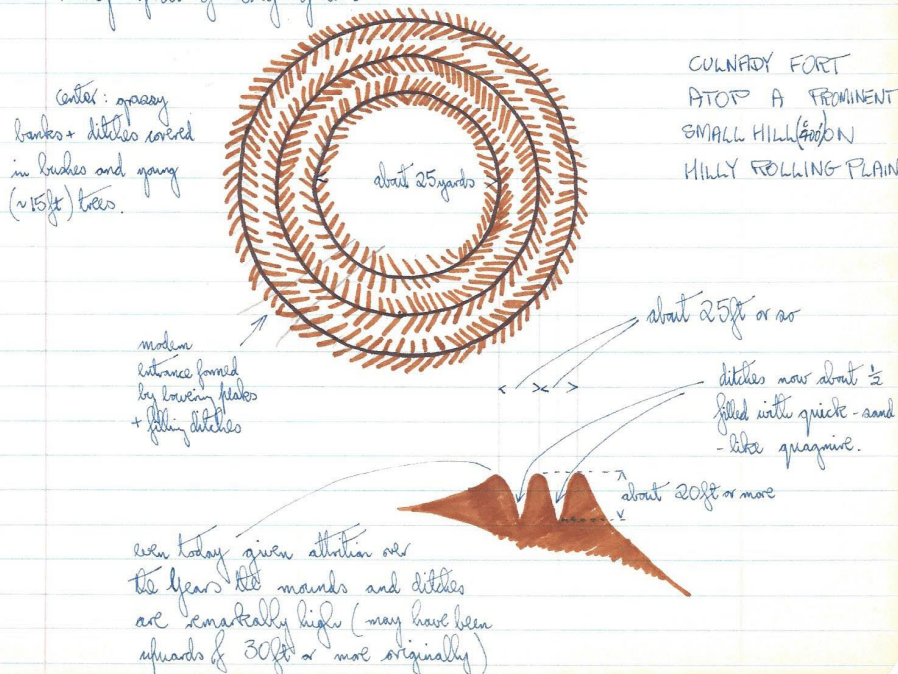 CULNADY FORT
ATOP A PROMINENT
SMALL HILL (400') ON
HILLY ROLLING PLAIN
center: grassy
banks + ditches covered
in bushes and young
(~15ft) trees.
about 25 yards
modern
entrance formed
by lowering peaks
+ filling ditches
about 25ft or so
ditches now about ½
filled with quick-sand
-like quagmire.
about 20ft or more
even today given attrition over
the years the mounds and ditches
are remarkably high (may have been
upwards of 30ft or more originally)